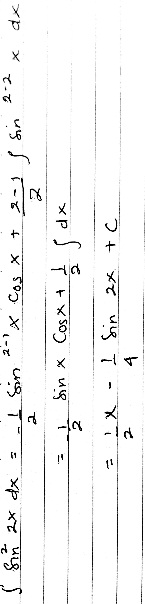 ∫ sin² 2x dx = -1/2 sin^(2-1) x cos x + (2-1)/2 ∫ sin^(2-2) x dx
= -1/2 sin x cos x + 1/2 ∫ dx
= 1/2 x - 1/4 sin 2x + C